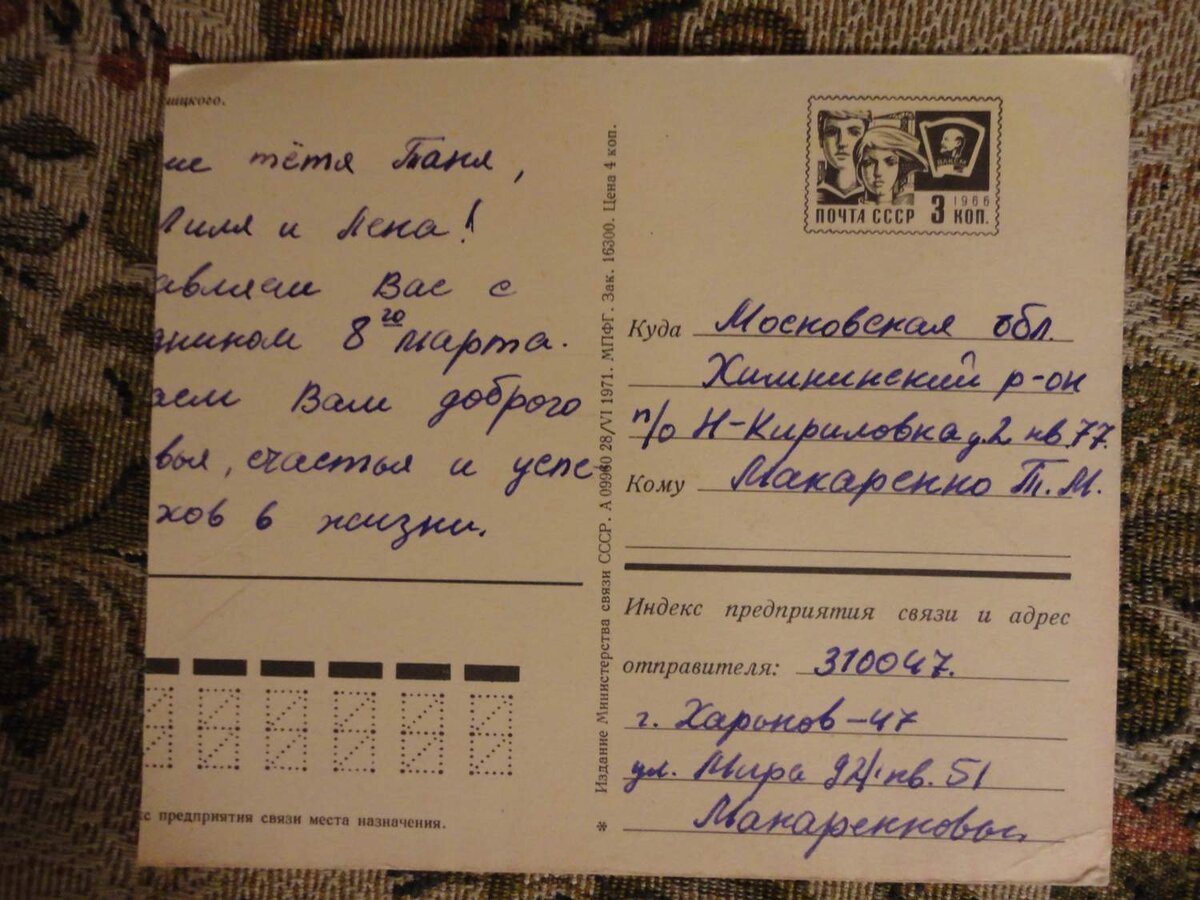 шцкого.
ие тётя Таня,
Лиля и Лена!
авляем Вас с
дником 8го марта.
аем Вам доброго
вья, счастья и успе
хов в жизни.
с предприятия связи места назначения.
Издание Министерства связи СССР. А 09960 28/VI 1971. МПФГ. Зак. 16300. Цена 4 коп.
ВЛКСМ
1966
ПОЧТА СССР 3 КОП.
Куда Московская обл.
Химкинский р-он
п/о Н-Кириловка д.2 кв 77.
Кому Макаренко Т.М.
Индекс предприятия связи и адрес
отправителя: 310047.
г. Харьков-47
ул. Мира 92/1 кв. 51
*
Макаренковы.